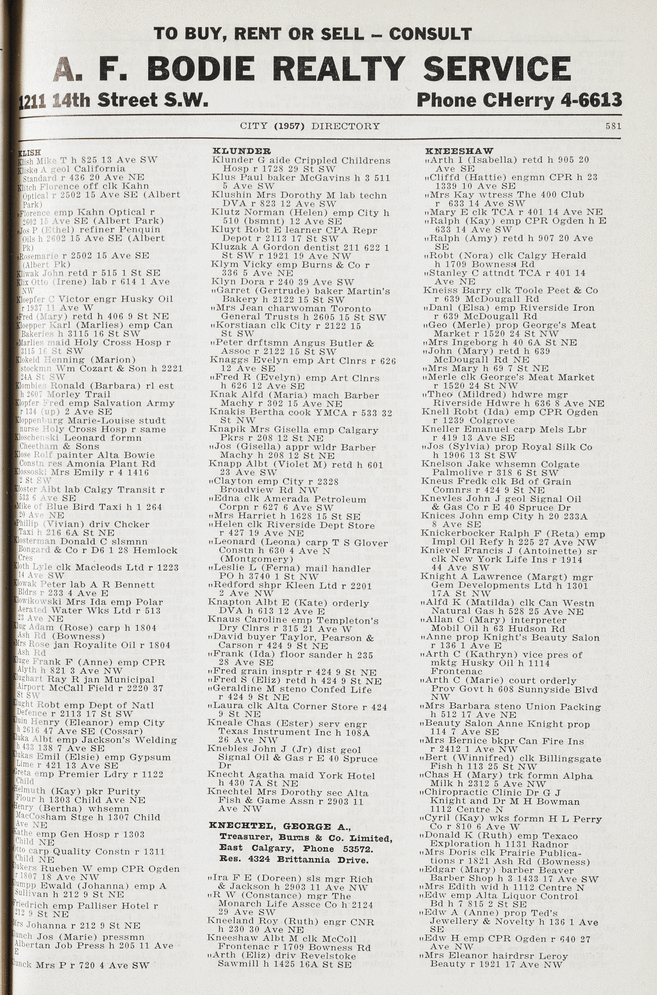 TO BUY, RENT OR SELL – CONSULT
A. F. BODIE REALTY SERVICE
1211 14th Street S.W. Phone CHerry 4-6613
CITY (1957) DIRECTORY 581
KLISH
Klish Mike T h 825 13 Ave SW
A geol California
Standard r 436 20 Ave NE
Florence off clk Kahn
Optical r 2502 15 Ave SE (Albert
Park)
Florence emp Kahn Optical r
2602 15 Ave SE (Albert Park)
Jos P (Ethel) refiner Penquin
Oils h 2602 15 Ave SE (Albert
Pk)
Rosemarie r 2502 15 Ave SE
(Albert Pk)
John retd r 515 1 St SE
Otto (Irene) lab r 614 1 Ave
NW
Kloepfer C Victor engr Husky Oil
r 1937 11 Ave W
Fred (Mary) retd h 406 9 St NE
Kloepper Karl (Marlies) emp Can
Bakeries h 3115 16 St SW
Marlies maid Holy Cross Hosp r
3115 16 St SW
Henning (Marion)
stockmn Wm Cozart & Son h 2221
24A St SW
Ronald (Barbara) rl est
h 2607 Morley Trail
Klopfer Fred emp Salvation Army
r 134 (up) 2 Ave SE
Kloppenburg Marie-Louise studt
nurse Holy Cross Hosp r same
Leonard formn
Cheetham & Sons
Klose Rolf painter Alta Bowie
Constn res Amonia Plant Rd
Mrs Emily r 4 1416
2 St SW
Albt lab Calgary Transit r
513 6 Ave SE
Mike of Blue Bird Taxi h 1 264
20 Ave NE
Phillip (Vivian) driv Checker
Taxi h 216 6A St NE
Klosterman Donald C slsmn
Bongard & Co r D6 1 28 Hemlock
Cres
Lyle clk Macleods Ltd r 1223
14 Ave SW
Peter lab A R Bennett
Bldrs r 233 4 Ave E
Mrs Ida emp Polar
Aerated Water Wks Ltd r 513
23 Ave NE
Klug Adam (Rose) carp h 1804
Ash Rd (Bowness)
Mrs Rose jan Royalite Oil r 1804
Ash Rd
Kluge Frank F (Anne) emp CPR
Alyth h 821 3 Ave NW
Ray R jan Municipal
Airport McCall Field r 2220 37
St SW
Robt emp Dept of Natl
Defence r 2113 17 St SW
Henry (Eleanor) emp City
h 2616 47 Ave SE (Cossar)
Albt emp Jackson's Welding
h 433 138 7 Ave SE
Emil (Elsie) emp Gypsum
Lime r 421 13 Ave SE
Greta emp Premier Ldry r 1122
Child
Helmuth (Kay) pkr Purity
Flour h 1303 Child Ave NE
Henry (Bertha) whsemn
MacCosham Stge h 1307 Child
Ave NE
Kathe emp Gen Hosp r 1303
Child NE
Otto carp Quality Constn r 1311
Child NE
Rueben W emp CPR Ogden
r 1807 18 Ave NW
Klumpp Ewald (Johanna) emp A
Sullivan h 212 9 St NE
Friedrich emp Palliser Hotel r
212 9 St NE
Mrs Johanna r 212 9 St NE
Jos (Marie) pressmn
Albertan Job Press h 205 11 Ave
E
Mrs P r 720 4 Ave SW
KLUNDER
Klunder G aide Crippled Childrens
Hosp r 1728 29 St SW
Klus Paul baker McGavins h 3 511
5 Ave SW
Klushin Mrs Dorothy M lab techn
DVA r 823 12 Ave SW
Klutz Norman (Helen) emp City h
510 (bsmnt) 12 Ave SE
Kluyt Robt E learner CPA Repr
Depot r 2113 17 St SW
Kluzak A Gordon dentist 211 622 1
St SW r 1921 19 Ave NW
Klym Vicky emp Burns & Co r
336 5 Ave NE
Klyn Dora r 240 39 Ave SW
"Garret (Gertrude) baker Martin's
Bakery h 2122 15 St SW
"Mrs Jean charwoman Toronto
General Trusts h 2605 15 St SW
"Korstiaan clk City r 2122 15
St SW
"Peter drftsmn Angus Butler &
Assoc r 2122 15 St SW
Knaggs Evelyn emp Art Clnrs r 626
12 Ave SE
"Fred R (Evelyn) emp Art Clnrs
h 626 12 Ave SE
Knak Alfd (Maria) mach Barber
Machy r 302 15 Ave NW
Knakis Bertha cook YMCA r 533 32
St NW
Knapik Mrs Gisella emp Calgary
Pkrs r 208 12 St NE
"Jos (Gisella) appr wldr Barber
Machy h 208 12 St NE
Knapp Albt (Violet M) retd h 601
23 Ave SW
"Clayton emp City r 2328
Broadview Rd NW
"Edna clk Amerada Petroleum
Corpn r 627 6 Ave SW
"Mrs Harriet h 1628 15 St SE
"Helen clk Riverside Dept Store
r 427 19 Ave NE
"Leonard (Leona) carp T S Glover
Constn h 630 4 Ave N
(Montgomery)
"Leslie L (Ferna) mail handler
PO h 3740 1 St NW
"Redford shpr Kleen Ltd r 2201
2 Ave NW
Knapton Albt E (Kate) orderly
DVA h 613 12 Ave E
Knaus Caroline emp Templeton's
Dry Clnrs r 315 21 Ave W
"David buyer Taylor, Pearson &
Carson r 424 9 St NE
"Frank (Ida) floor sander h 235
28 Ave SE
"Fred grain insptr r 424 9 St NE
"Fred S (Eliz) retd h 424 9 St NE
"Geraldine M steno Confed Life
r 424 9 St NE
"Laura clk Alta Corner Store r 424
9 St NE
Kneale Chas (Ester) serv engr
Texas Instrument Inc h 108A
26 Ave NW
Knebles John J (Jr) dist geol
Signal Oil & Gas r E 40 Spruce
Dr
Knecht Agatha maid York Hotel
h 430 7A St NE
Knechtel Mrs Dorothy sec Alta
Fish & Game Assn r 2903 11
Ave NW
KNECHTEL, GEORGE A.,
Treasurer, Burns & Co. Limited,
East Calgary, Phone 53572.
Res. 4324 Brittannia Drive.
"Ira F E (Doreen) sls mgr Rich
& Jackson h 2903 11 Ave NW
"R W (Constance) mgr The
Monarch Life Assce Co h 2124
29 Ave SW
Kneeland Roy (Ruth) engr CNR
h 230 30 Ave NE
Kneeshaw Albt M clk McColl
Frontenac r 1709 Bowness Rd
"Arth (Eliz) driv Revelstoke
Sawmill h 1425 16A St SE
KNEESHAW
"Arth I (Isabella) retd h 905 20
Ave SE
"Cliffd (Hattie) engmn CPR h 23
1339 10 Ave SE
"Mrs Kay wtress The 400 Club
r 633 14 Ave SW
"Mary E clk TCA r 401 14 Ave NE
"Ralph (Kay) emp CPR Ogden h E
633 14 Ave SW
"Ralph (Amy) retd h 907 20 Ave
SE
"Robt (Nora) clk Calgy Herald
h 1709 Bowness Rd
"Stanley C attndt TCA r 401 14
Ave NE
Kneiss Barry clk Toole Peet & Co
r 639 McDougall Rd
"Danl (Elsa) emp Riverside Iron
r 639 McDougall Rd
"Geo (Merle) prop George's Meat
Market r 1520 24 St NW
"Mrs Ingeborg h 40 6A St NE
"John (Mary) retd h 639
McDougall Rd NE
"Mrs Mary h 69 7 St NE
"Merle clk George's Meat Market
r 1520 24 St NW
"Theo (Mildred) hdwre mgr
Riverside Hdwre h 636 8 Ave NE
Knell Robt (Ida) emp CPR Ogden
r 1239 Colgrove
Kneller Emanuel carp Mels Lbr
r 419 13 Ave SE
"Jos (Sylvia) prop Royal Silk Co
h 1906 13 St SW
Knelson Jake whsemn Colgate
Palmolive r 318 6 St SW
Kneus Fredk clk Bd of Grain
Comnrs r 424 9 St NE
Knevles John J geol Signal Oil
& Gas Co r E 40 Spruce Dr
Knices John emp City h 20 233A
8 Ave SE
Knickerbocker Ralph F (Reta) emp
Impl Oil Refy h 225 27 Ave NW
Knievel Francis J (Antoinette) sr
clk New York Life Ins r 1914
44 Ave SW
Knight A Lawrence (Margt) mgr
Gem Developments Ltd h 1301
17A St NW
"Alfd K (Matilda) clk Can Westn
Natural Gas h 528 25 Ave NE
"Allan C (Mary) interpreter
Mobil Oil h 63 Hudson Rd
"Anne prop Knight's Beauty Salon
r 136 1 Ave E
"Arth C (Kathryn) vice pres of
mktg Husky Oil h 1114
Frontenac
"Arth C (Marie) court orderly
Prov Govt h 608 Sunnyside Blvd
NW
"Mrs Barbara steno Union Packing
h 512 17 Ave NE
"Beauty Salon Anne Knight prop
114 7 Ave SE
"Mrs Bernice bkpr Can Fire Ins
r 2412 1 Ave NW
"Bert (Winnifred) clk Billingsgate
Fish h 113 25 St NW
"Chas H (Mary) trk formn Alpha
Milk h 2312 5 Ave NW
"Chiropractic Clinic Dr G J
Knight and Dr M H Bowman
1112 Centre N
"Cyril (Kay) wks formn H L Perry
Co r 810 6 Ave W
"Donald K (Ruth) emp Texaco
Exploration h 1131 Radnor
"Mrs Doris clk Prairie Publica-
tions r 1821 Ash Rd (Bowness)
"Edgar (Mary) barber Beaver
Barber Shop h 3 1433 17 Ave SW
"Mrs Edith wid h 1112 Centre N
"Edw emp Alta Liquor Control
Bd h 7 815 2 St SE
"Edw A (Anne) prop Ted's
Jewellery & Novelty h 136 1 Ave
SE
"Edw H emp CPR Ogden r 640 27
Ave NW
"Mrs Eleanor hairdrsr Leroy
Beauty r 1921 17 Ave NW